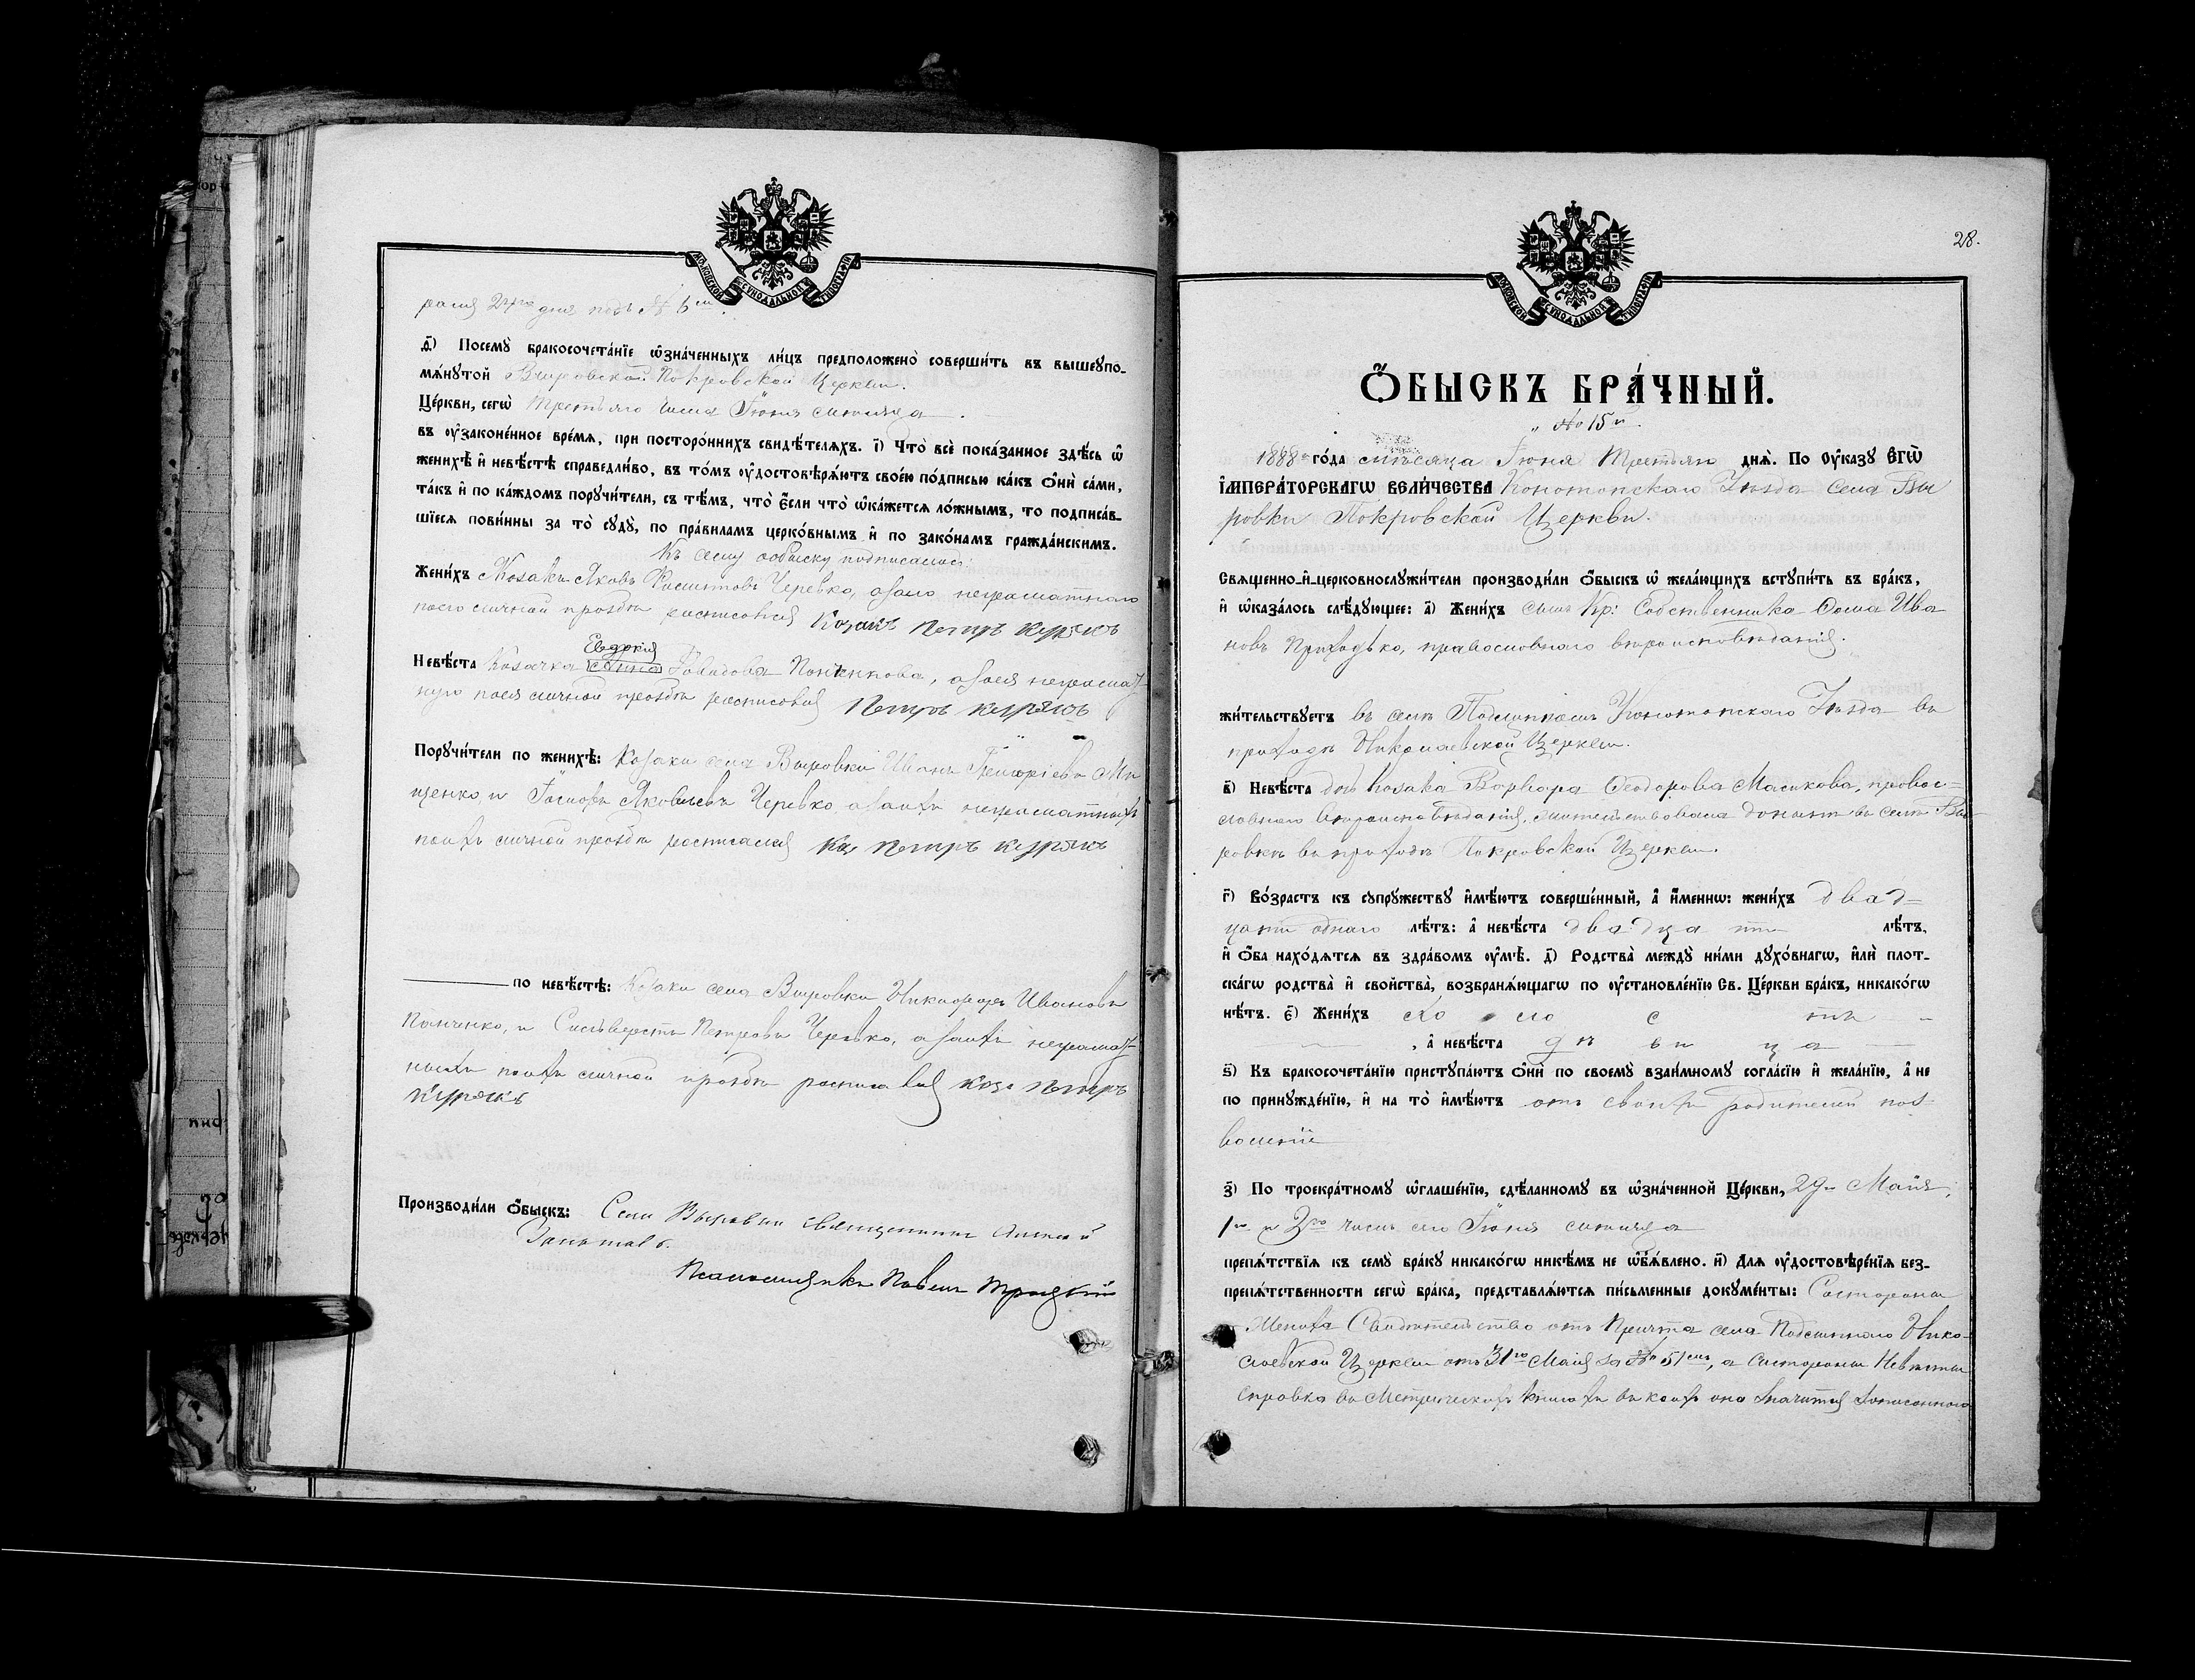 МОСКОВСКОЙ СѴНОДАЛЬНОЙ ТИПОГРАФІИ
раля 24го дня подъ № 6мъ.
ѳ҃) Посемꙋ̀ бракосочета́нїе ѡ҆зна́ченныхъ ли́цъ предположено̀ соверши́ть въ вышеꙋпо-
мѧ́нꙋтой Выровской Покровской Церкви.
Це́ркви, сегѡ̀ Третьяго числа Іюня мѣсяца
въ ᲂу҆законе́нное вре́мѧ, при посторо́ннихъ свидѣ́телѧхъ. і҃) Что̀ всѐ пока́занное здѣ́сь ѡ҆
женихѣ̀ и҆ невѣ́стѣ справедли́во, въ то́мъ ᲂу҆достовѣрѧ́ютъ свое́ю по́дписью ка́къ ѻ҆нѝ са́ми,
та́къ и҆ по ка́ждомъ порꙋчи́тели, съ тѣ́мъ, что̀ є҆́сли что̀ ѡ҆ка́жется ло́жнымъ, то подписа́в-
шїесѧ пови́нны за то̀ сꙋдꙋ̀, по пра́виламъ церко́внымъ и҆ по зако́намъ гражда́нскимъ.
Къ сему обыску подписались:
Жени́хъ Козакъ Яковъ Черевко, а за его неграмотнаго
по его личной прозбѣ росписовся Козакъ Петръ Курякъ
Евдокія
Невѣ́ста Козачка Давидова Панченкова, а за ея неграмот-
ную по ея личной прозбѣ росписовся Петръ Курякъ
Порꙋчи́тели по женихѣ̀: Козаки села Выровки Иванъ Григоріевъ Ми
щенко, и Іосифъ Яковлевъ Черевко, а за ихъ неграмотныхъ
по ихъ личной прозбѣ росписался Коз Петръ Курякъ
по невѣ́стѣ: Козаки села Выровки Никифоръ Ивановъ
Панченко, и Сильверстъ Петровъ Черевко, а за ихъ неграмот-
ныхъ по ихъ личной прозбѣ росписався Коза Петръ
Курякъ
Производи́ли ѻ҆́быскъ: Села Выровки священникъ Алексѣй
Псаломщикъ Павелъ Троцкій
28.
МОСКОВСКОЙ СѴНОДАЛЬНОЙ ТИПОГРАФІИ
Ѻ҆́БЫСКЪ БРА́ЧНЫЙ.
„ № 15й.
1888го го́да мѣсяца Іюня Третьяго днѧ̀. По ᲂу҆ка́зꙋ Є҆ГѠ̀
І҆МПЕРА́ТОРСКАГѠ ВЕЛИ́ЧЕСТВА Конотопскаго Уѣзда села Вы
ровки Покровской Церкви.
Свѧще́нно-и҆-церковнослꙋжи́тели производи́ли ѻ҆́быскъ ѡ҆ жела́ющихъ встꙋпи́ть въ бра́къ,
и҆ ѡ҆каза́лось слѣ́дꙋющее: а҃) Жени́хъ сынъ Кр: Собственника Фома Ива
новъ Приходько, православнаго вѣроисповѣданія.
жи́тельствꙋетъ въ селѣ Подлипномъ Конотопскаго Уѣзда въ
приходѣ Николаевской Церкви.
в҃) Невѣ́ста дочь козака Ворвара Ѳеодорова Масикова, правос-
славнаго вѣроисповѣданія, жительствовала донынѣ въ селѣ Вы-
ровкѣ въ приходѣ Покровской Церкви.
г҃) Во́зрастъ къ сꙋпрꙋ́жествꙋ и҆мѣ́ютъ соверше́нный, а҆ и҆́меннѡ: жени́хъ двад-
цати одного лѣ́тъ: а҆ невѣ́ста двадцати лѣ́тъ,
и҆ ѻ҆́ба нахо́дятся въ здра́вомъ ᲂу҆мѣ̀. д҃) Родства̀ междꙋ ни́ми дꙋхо́внагѡ, и҆лѝ плот-
ска́гѡ родства̀ и҆ сво́йства̀, возбранѧ́ющагѡ по ᲂу҆становле́нїю Св. Це́ркви бра́къ, никако́гѡ
нѣ́тъ. є҃) Жени́хъ холостъ
, а҆ невѣ́ста дѣвица
ѕ҃) Къ бракосочета́нїю пристꙋпа́ютъ ѻ҆нѝ по своемꙋ̀ взаи́мномꙋ согла́сїю и҆ жела́нїю, а҆ не
по принꙋжде́нїю, и҆ на то̀ и҆мѣ́ютъ отъ своихъ родителей поз-
воленіе
з҃) По троекра́тномꙋ ѡ҆глаше́нїю, сдѣ́ланномꙋ въ ѡ҆зна́ченной Це́ркви, 29го Маія,
1го и 3го чиселъ сего Іюня мѣсяца
препѧ́тствїя къ семꙋ̀ бра́кꙋ никако́гѡ никѣ́мъ не ѡ҆бъѧ́влено. и҃) Для ᲂу҆достовѣре́нїя без-
препѧ́тственности сегѡ̀ бра́ка, представлѧ́ются пи́сьменные докꙋме́нты: Состороны
Жениха Свидѣтельство отъ Причта села Подлипнаго Нико-
лаевской Церкви отъ 31го Маія за № 51мъ, а состороны Невѣсты
Справка въ Метрическихъ книгахъ въ коихъ она значится записанною